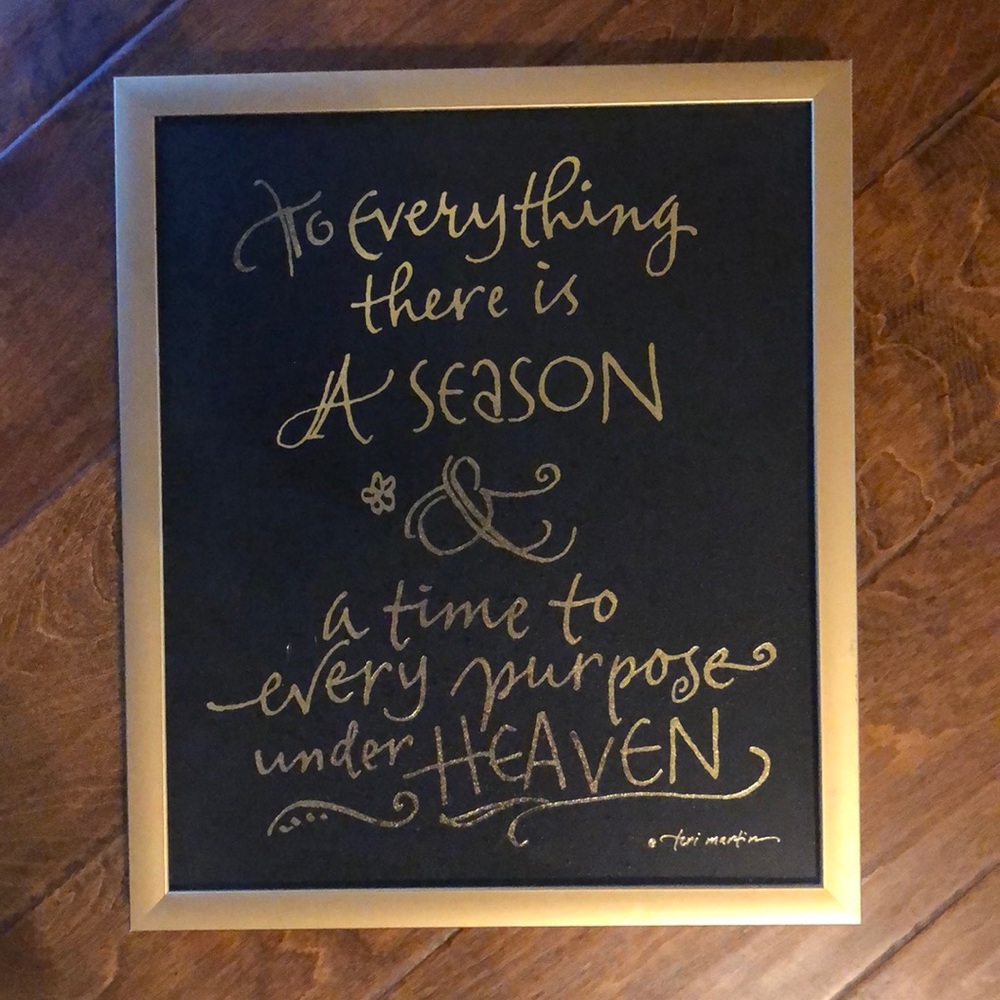 To Everything
there is
A SEASON
&
a time to
every purpose
under HEAVEN
teri martin